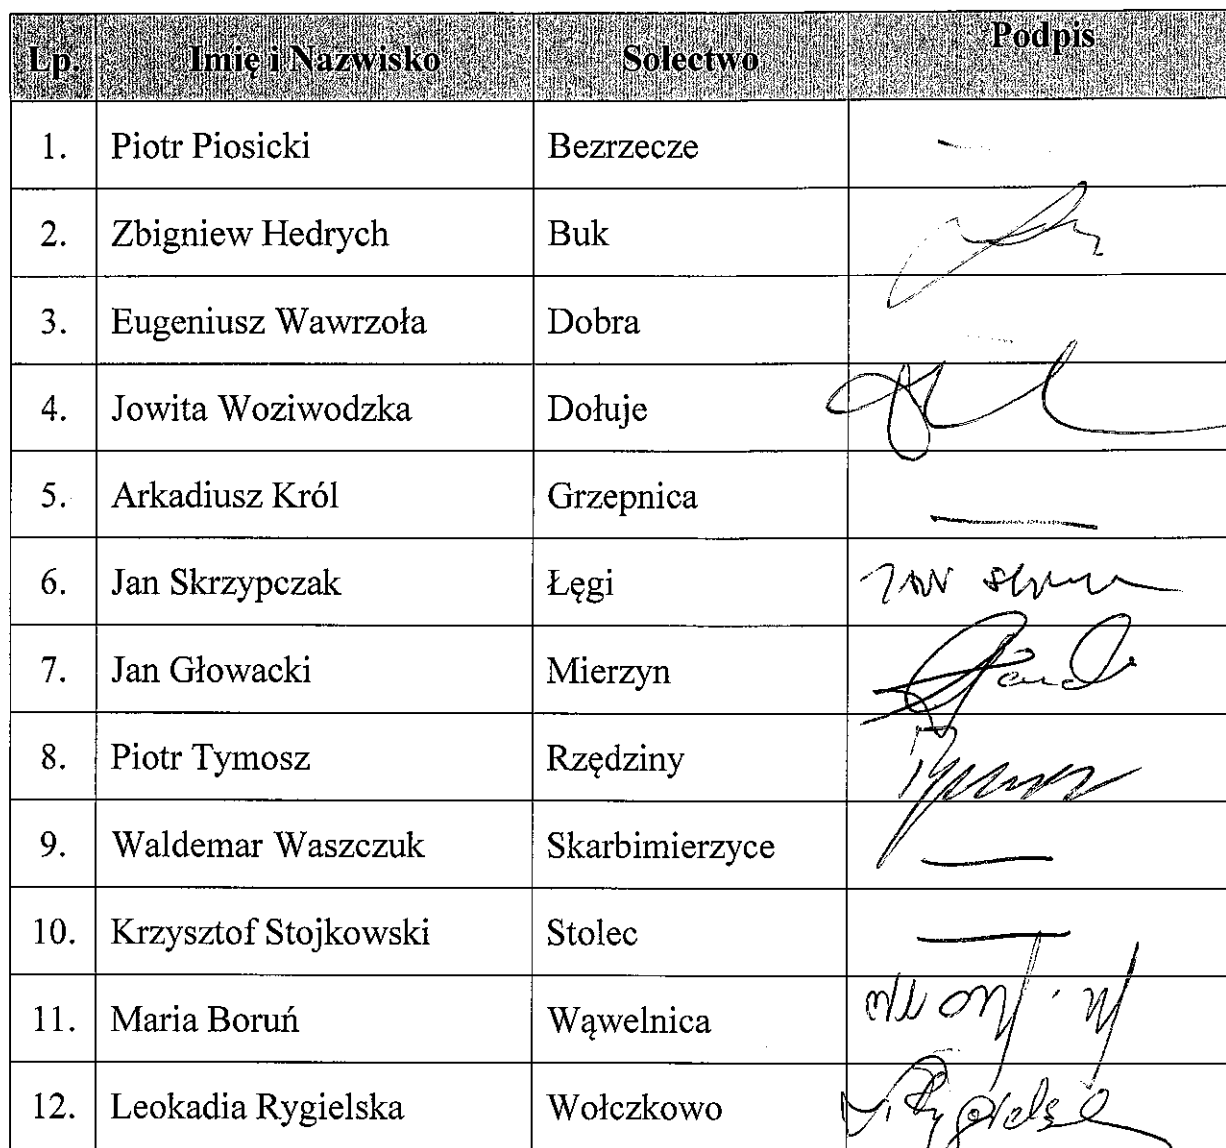 Lp. Imię i Nazwisko Sołectwo Podpis
1. Piotr Piosicki Bezrzecze —
2. Zbigniew Hedrych Buk
3. Eugeniusz Wawrzoła Dobra —
4. Jowita Woziwodzka Dołuje
5. Arkadiusz Król Grzepnica —
6. Jan Skrzypczak Łęgi
7. Jan Głowacki Mierzyn
8. Piotr Tymosz Rzędziny
9. Waldemar Waszczuk Skarbimierzyce —
10. Krzysztof Stojkowski Stolec —
11. Maria Boruń Wąwelnica
12. Leokadia Rygielska Wołczkowo